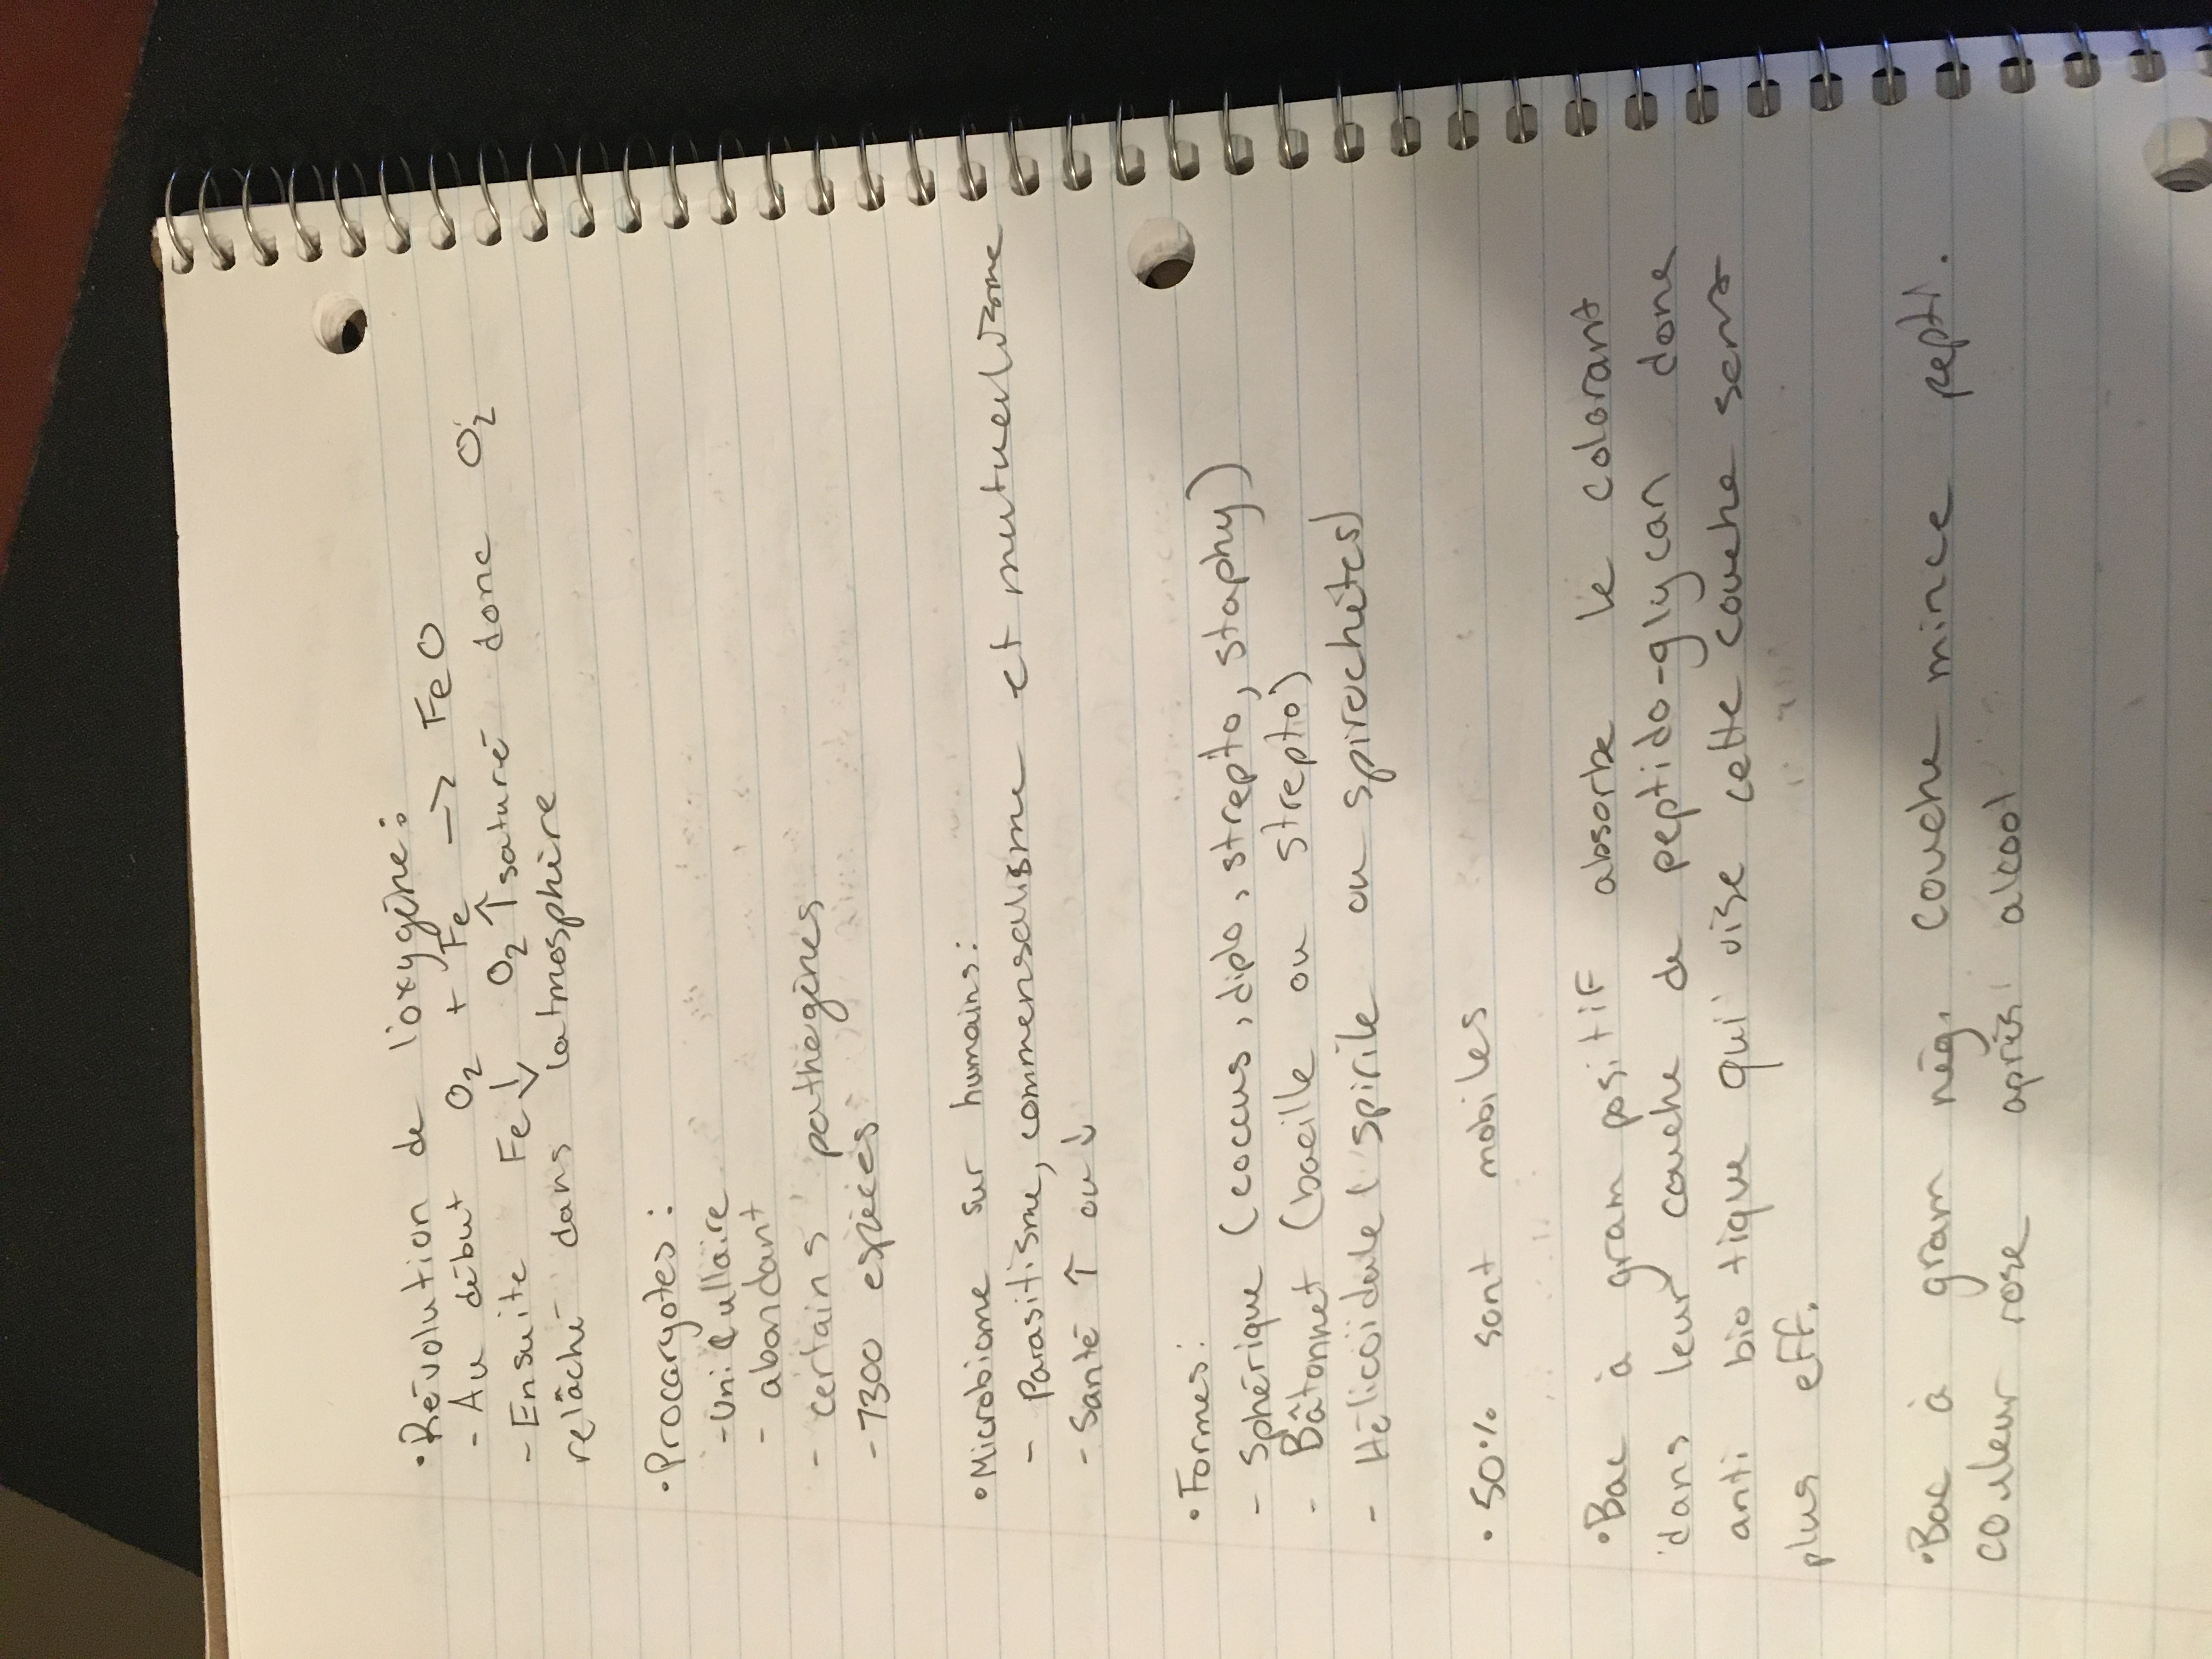 • Révolution de l'oxygène:
- Au début O₂ + Fe → FeO
- Ensuite Fe↓ O₂↑ saturé donc O₂
relâché dans latmosphère
• Procaryotes:
- Unicullaire
- abondant
- certains pathegènes
- 7300 espèces
• Microbiome sur humains:
- Parasitisme, commensalisme et mutuelisme
- Santé ↑ ou ↓
• Formes:
- Sphérique (cocus, diplo, strepto, staphy)
- Bâtonnet (bacille ou strepto)
- Hélicoïdale (spirile ou spirochètes)
• 50% sont mobiles
• Bac à gram positif absorbe le colorant
dans leur couche de peptido-glycan donc
anti bio tique qui vise cette couche sera
plus eff.
• Bac à gram nég. couche mince pept.
couleur rose après alcool